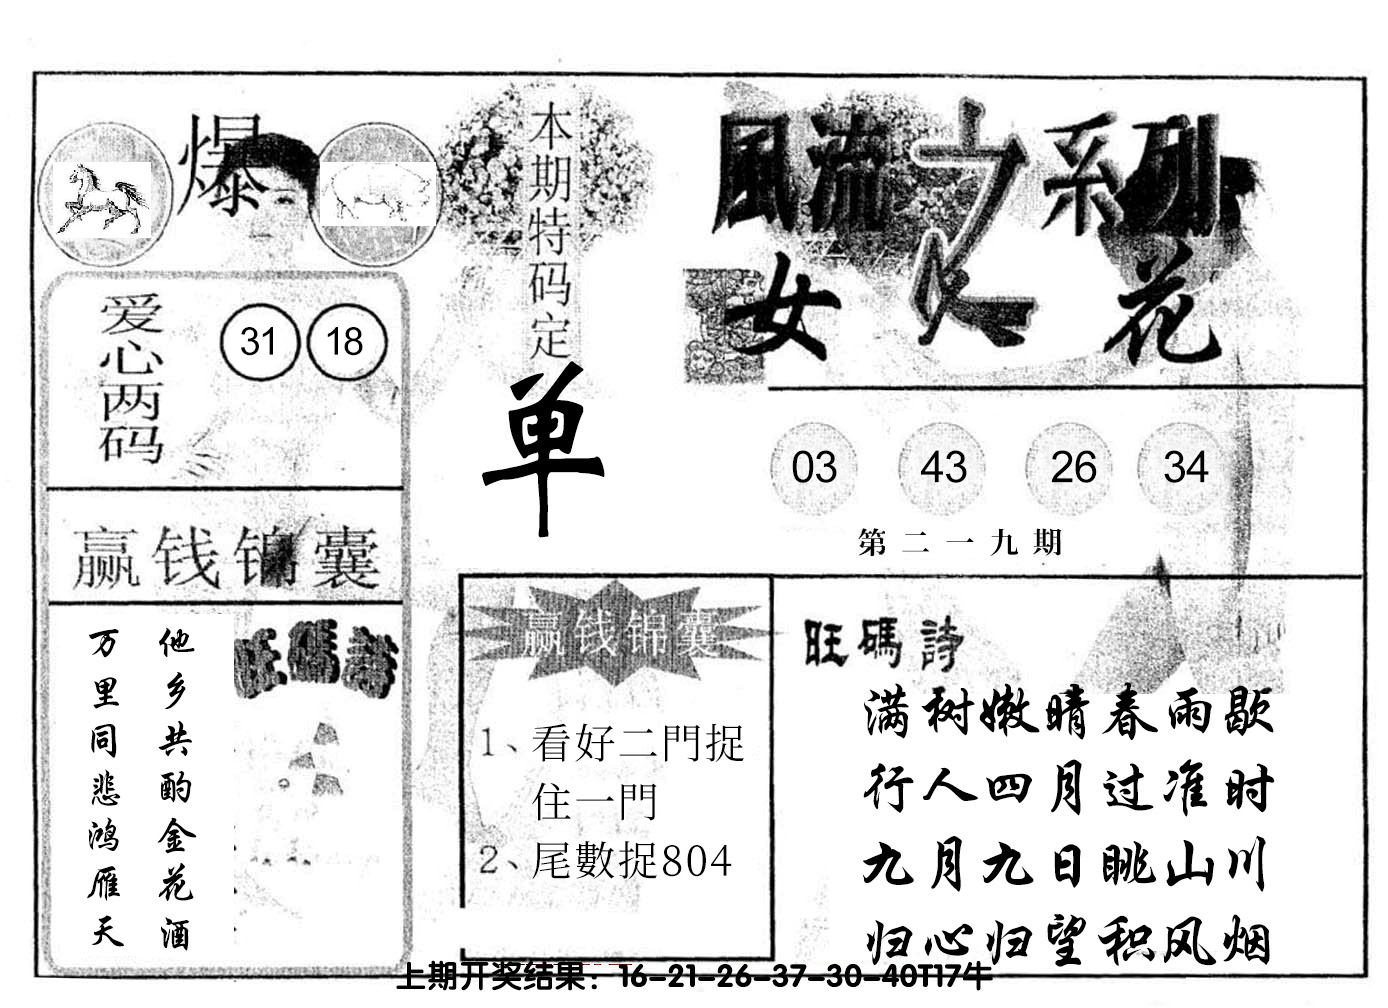 爆
本期特码定
单
風流之系列
女人花
爱心两码
31 18
03 43 26 34
第二一九期
赢钱锦囊
他乡共酌金花酒
万里同悲鸿雁天
旺碼詩
赢钱锦囊
1、看好二門捉
住一門
2、尾數捉804
旺碼詩
满树嫩晴春雨歇
行人四月过准时
九月九日眺山川
归心归望积风烟
上期开奖结果：16-21-26-37-30-40T17牛